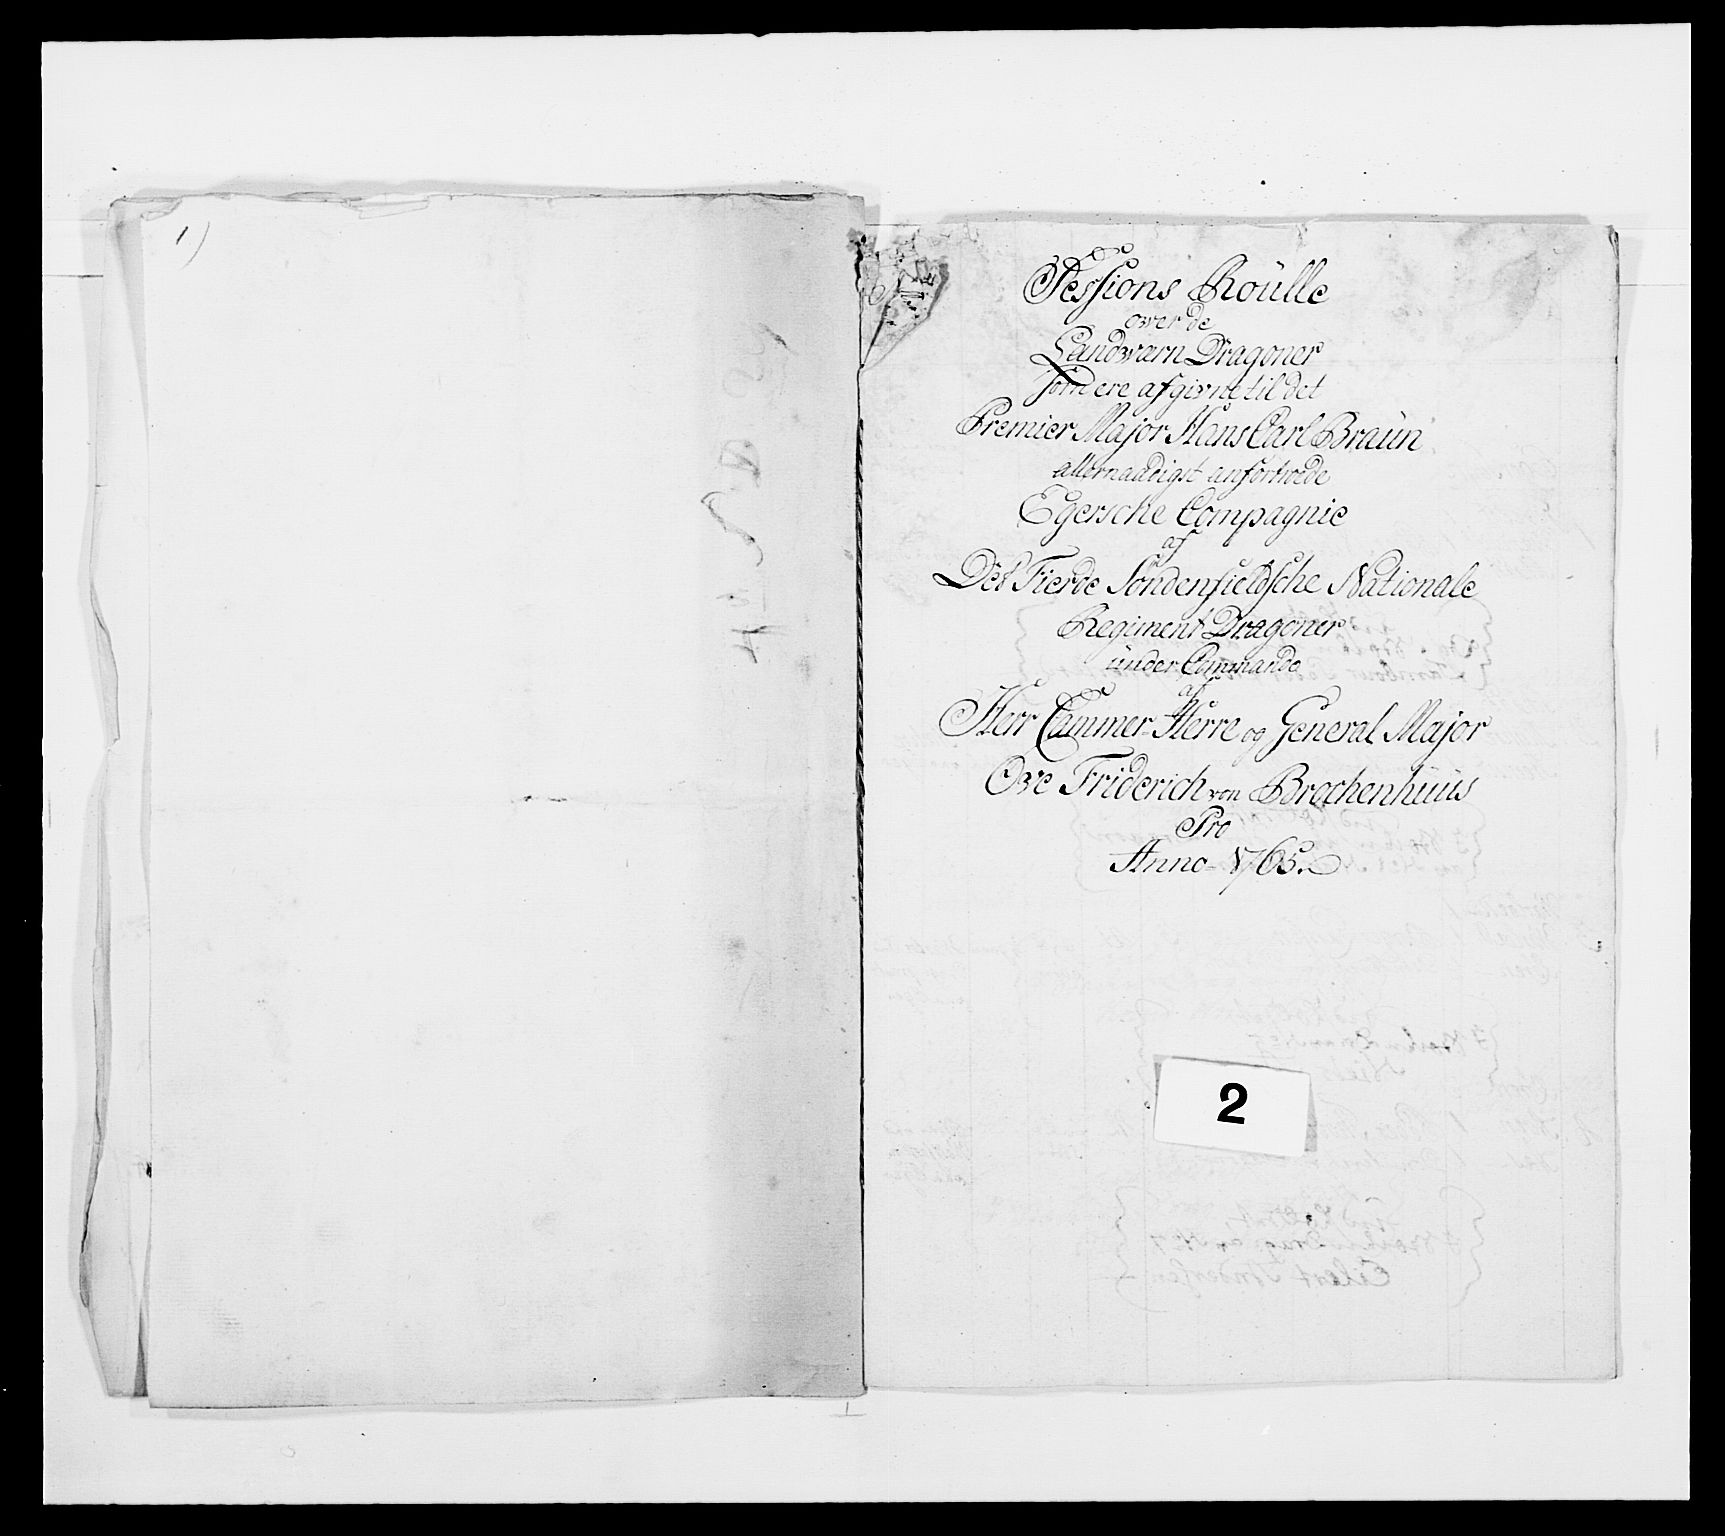 1)
Sessions Roülle
over de
Landværn Dragoner
som ere afgivne til det
Premier Major Hans Carl Braün
allernaadigst anfortroede
Egersche Compagnie
af
Det Fierde Søndenfieldsche Nationale
Regiment Dragoner
ünder Commando
af
Herr Cammer-Herre og General Major
Ove Friderich von Brochenhüüs
Pro
Anno 1765.
2